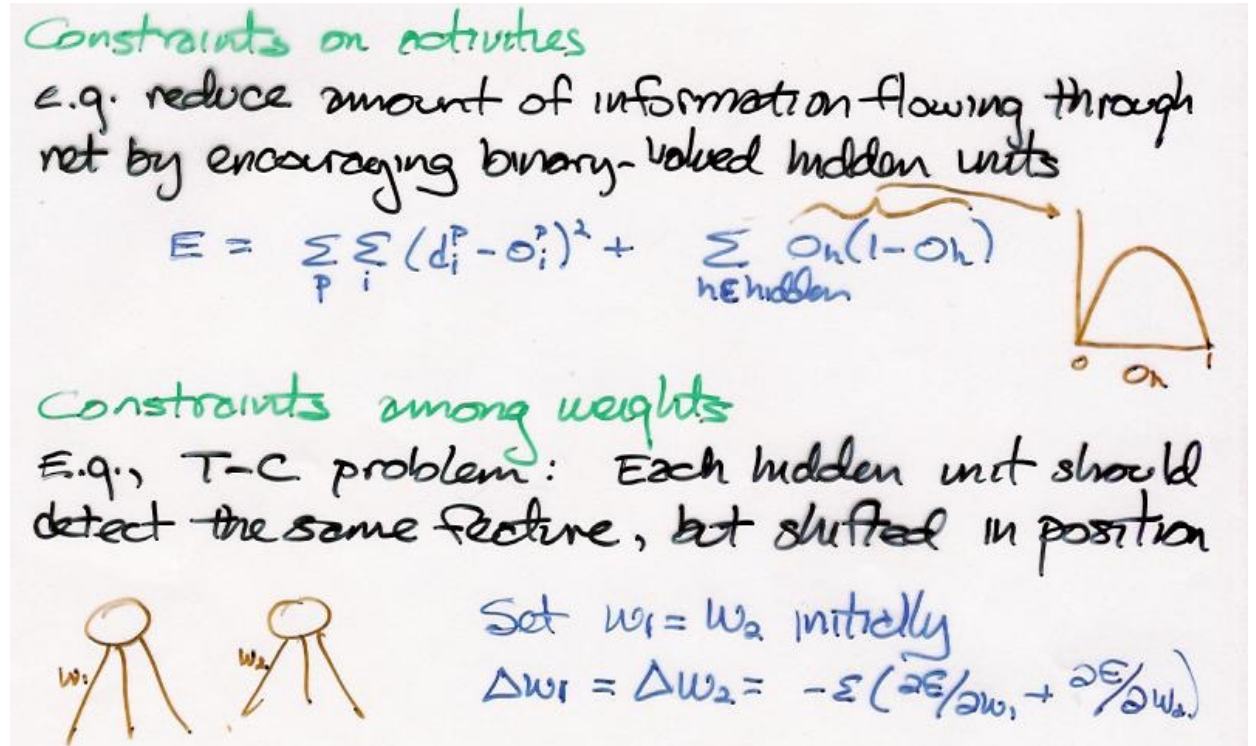 Constraints on activities
e.g. reduce amount of information flowing through
net by encouraging binary-valued hidden units
E = Σ_p Σ_i (d_i^p - o_i^p)^2 + Σ_{h∈hidden} o_h(1-o_h)
0 o_h 1
Constraints among weights
E.g., T-C problem: Each hidden unit should
detect the same feature, but shifted in position
w_1 w_2
Set w_1 = w_2 initially
Δw_1 = Δw_2 = -ε(∂E/∂w_1 + ∂E/∂w_2)